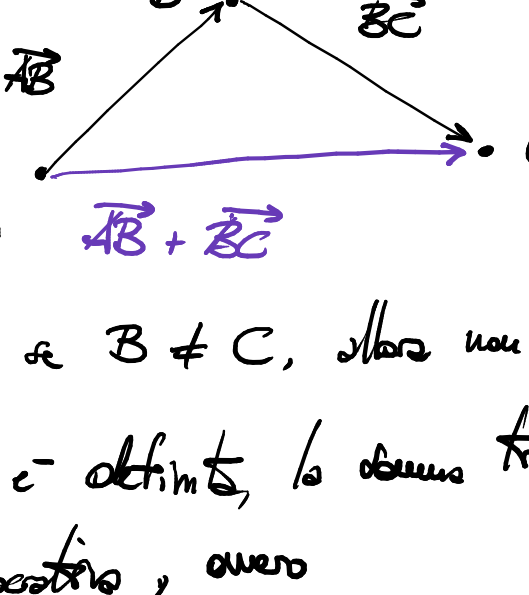 B
BC
AB
AB + BC
se B ≠ C, allora non
e- definita, la somma
ovvero